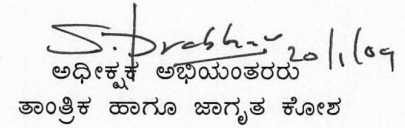 S. Prabhu 20/1/09
ಅಧೀಕ್ಷಕ ಅಭಿಯಂತರರು
ತಾಂತ್ರಿಕ ಹಾಗೂ ಜಾಗೃತ ಕೋಶ